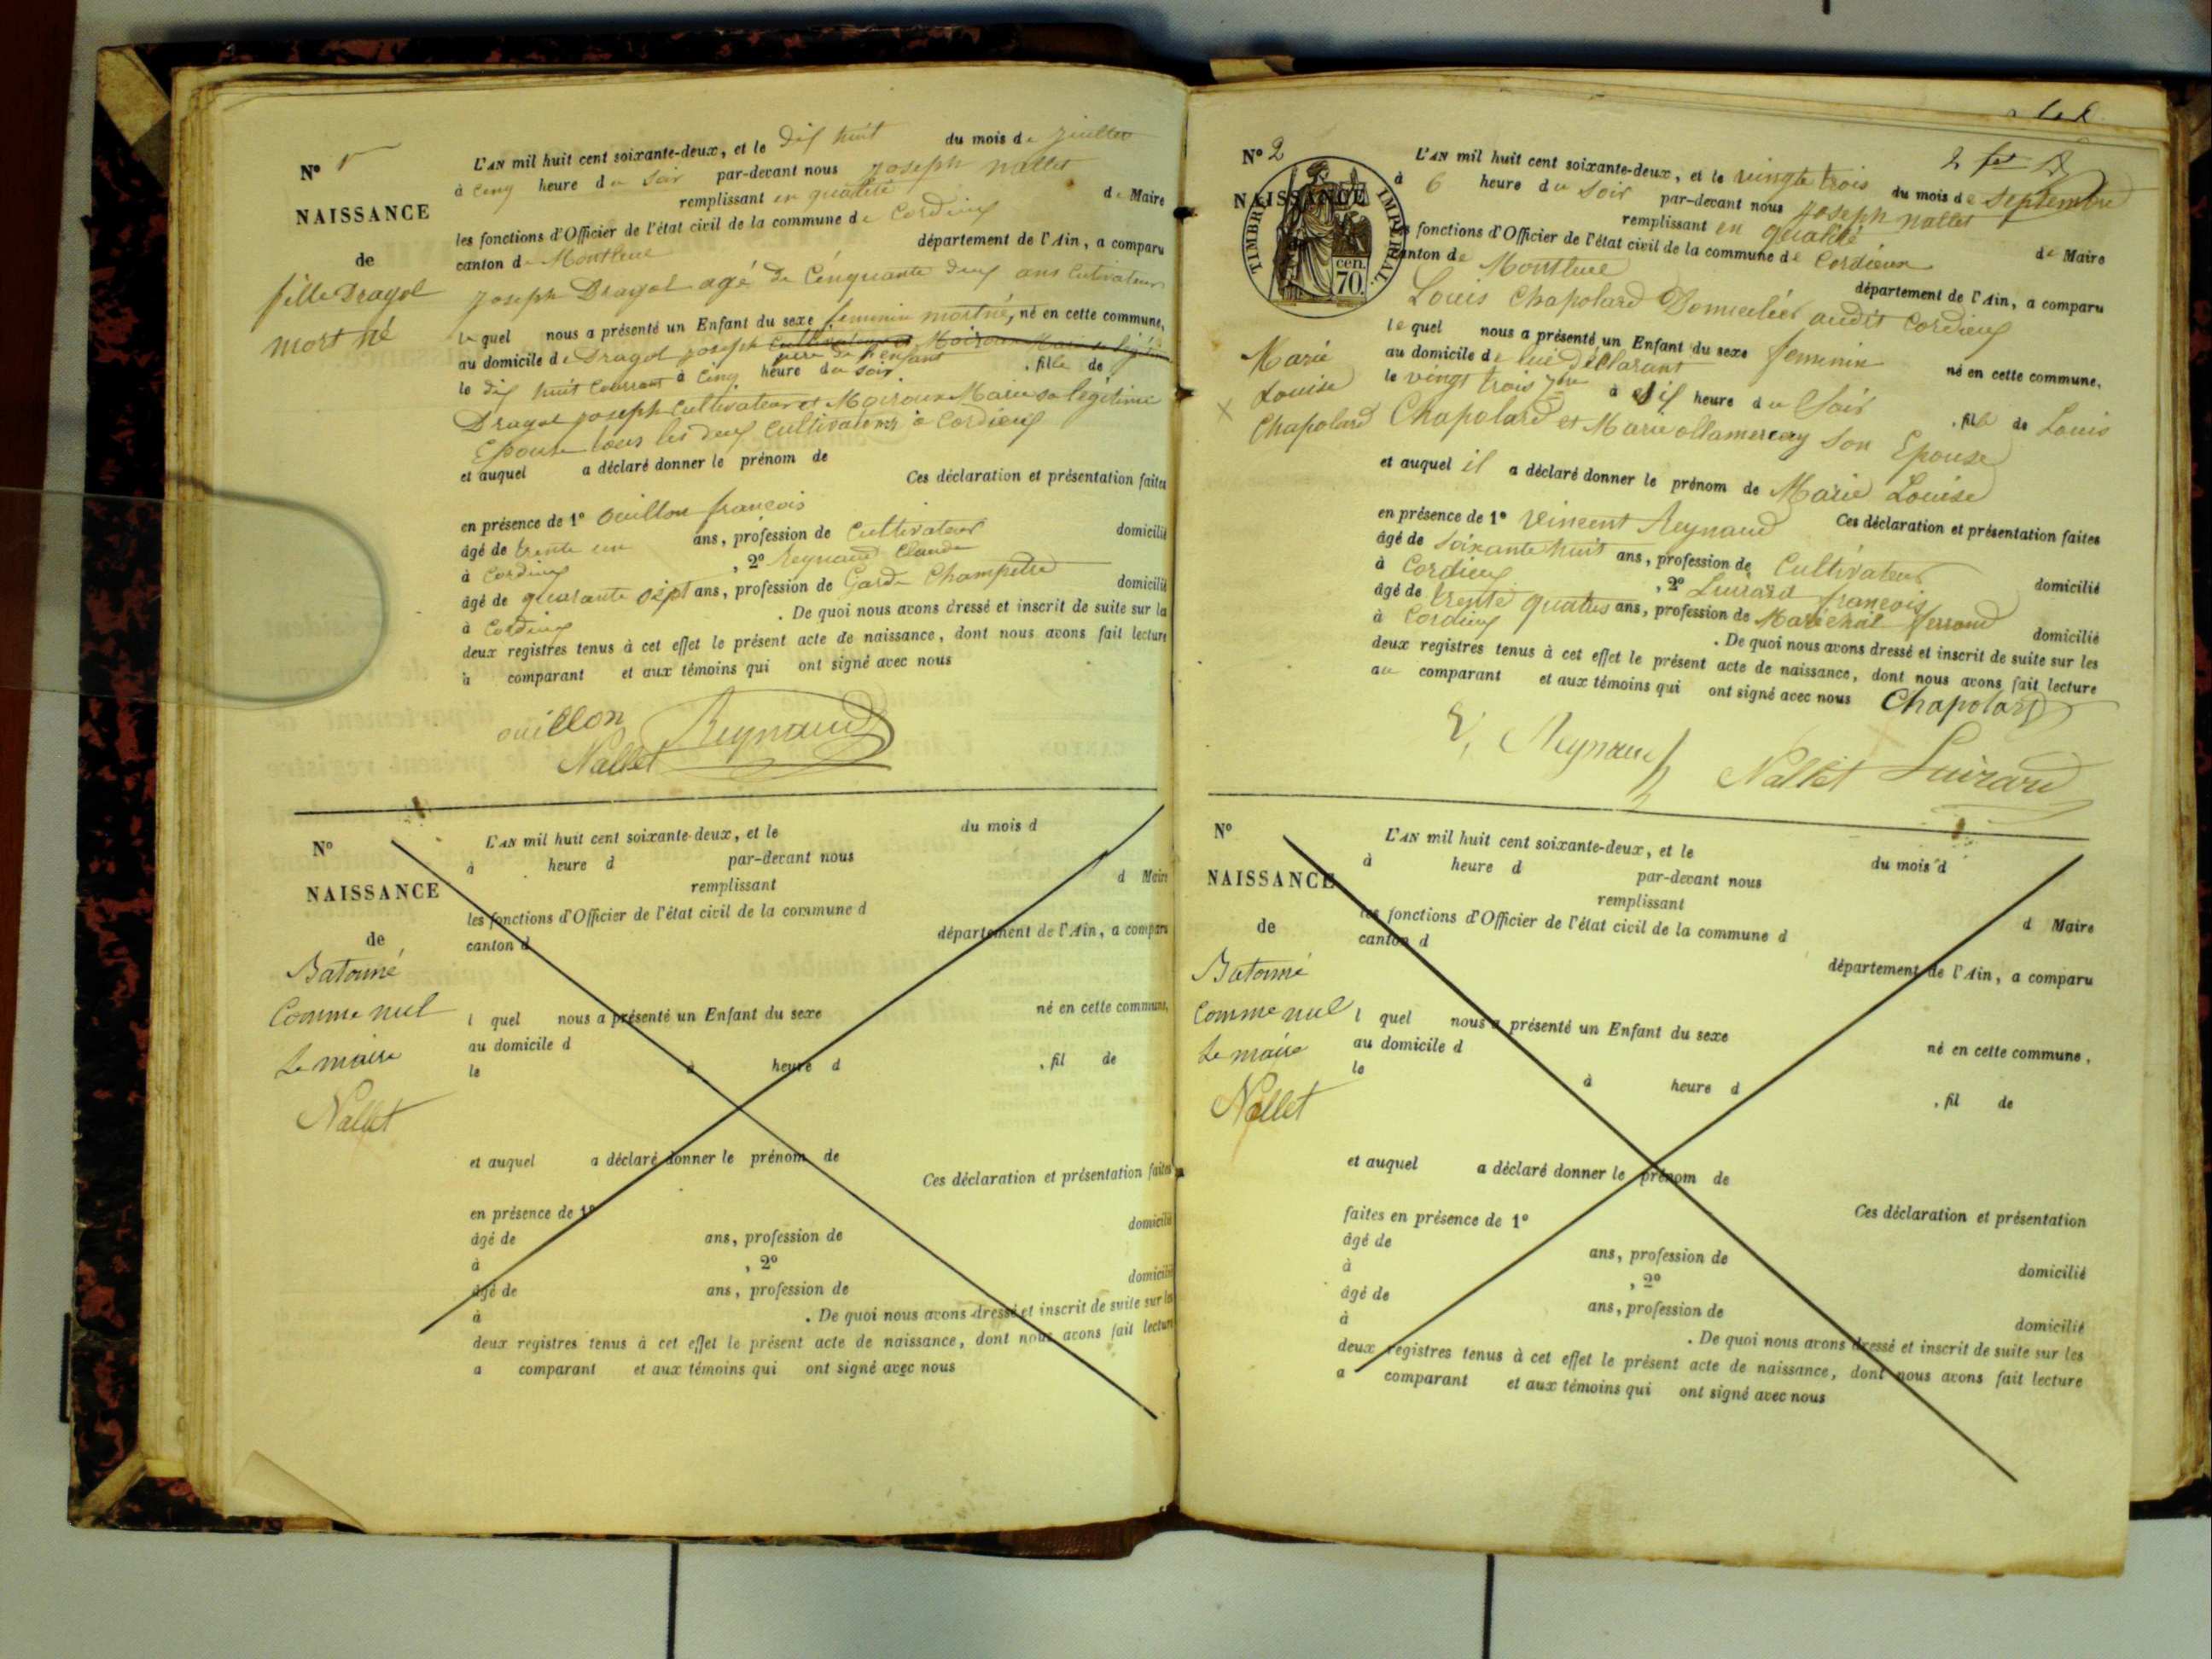 N° 1
NAISSANCE
de
fille Dragol
mort né
L'AN mil huit cent soixante-deux, et le dix huit du mois de juillet
à cinq heure du soir par-devant nous joseph nallet
remplissant en qualité de Maire
les fonctions d'Officier de l'état civil de la commune de Cordieux
canton de Montluel département de l'Ain, a comparu
joseph Dragol agé de Cinquante deux ans Cultivateur
lequel nous a présenté un Enfant du sexe feminin mort né, né en cette commune,
au domicile de Dragol joseph
père de l'enfant
le dix huit Courrant à Cinq heure du soir, fille de
Dragol joseph Cultivateur et Moiroux Marie sa légitime
Epouse tous les deux Cultivateurs à Cordieux
et auquel a déclaré donner le prénom de
Ces déclaration et présentation faites
en présence de 1° Ouillon françois
âgé de trente un ans, profession de Cultivateur domicilié
à Cordieux, 2° Reynaud Claude
âgé de quarante sept ans, profession de Garde Champetre domicilié
à Cordieux. De quoi nous avons dressé et inscrit de suite sur les
deux registres tenus à cet effet le présent acte de naissance, dont nous avons fait lecture
à comparant et aux témoins qui ont signé avec nous
ouillon Reynaud
Nallet
N°
NAISSANCE
de
Batonné
Comme nul
Le maire
Nallet
L'AN mil huit cent soixante-deux, et le du mois d
à heure d par-devant nous
remplissant d Maire
les fonctions d'Officier de l'état civil de la commune d
canton d département de l'Ain, a comparu
l quel nous a présenté un Enfant du sexe né en cette commune,
au domicile d
le à heure d, fil de
et auquel a déclaré donner le prénom de
Ces déclaration et présentation faites
en présence de 1°
âgé de ans, profession de domicilié
à, 2°
âgé de ans, profession de domicilié
à. De quoi nous avons dressé et inscrit de suite sur les
deux registres tenus à cet effet le présent acte de naissance, dont nous avons fait lecture
a comparant et aux témoins qui ont signé avec nous
N° 2
NAISSANCE
TIMBRE IMPERIAL
70. cen.
Marie
Louise
Chapolard
L'AN mil huit cent soixante-deux, et le vingte trois du mois de Septembre
à 6 heure du Soir par-devant nous joseph nallet
remplissant en qualité de Maire
fonctions d'Officier de l'état civil de la commune de Cordieux
canton de Montluel département de l'Ain, a comparu
Louis Chapolard Domicilié audit Cordieux
lequel nous a présenté un Enfant du sexe feminin né en cette commune,
au domicile de lui Déclarant
le vingt trois 7bre à six heure du Soir, fille de Louis
Chapolard et Marie son Epouse
et auquel il a déclaré donner le prénom de Marie Louise
Ces déclaration et présentation faites
en présence de 1° Vincent Reynaud
âgé de Soixante huit ans, profession de Cultivateur domicilié
à Cordieux, 2° Luirard françois
âgé de trente quatres ans, profession de Maréchal ferrand domicilié
à Cordieux. De quoi nous avons dressé et inscrit de suite sur les
deux registres tenus à cet effet le présent acte de naissance, dont nous avons fait lecture
au comparant et aux témoins qui ont signé avec nous Chapolard
V, Reynaud Nallet Luirard
N°
NAISSANCE
de
Batonné
Comme nul
Le maire
Nallet
L'AN mil huit cent soixante-deux, et le du mois d
à heure d par-devant nous
remplissant d Maire
les fonctions d'Officier de l'état civil de la commune d
canton d département de l'Ain, a comparu
l quel nous a présenté un Enfant du sexe né en cette commune,
au domicile d
le à heure d, fil de
et auquel a déclaré donner le prénom de
Ces déclaration et présentation
faites en présence de 1°
âgé de ans, profession de domicilié
à, 2°
âgé de ans, profession de domicilié
à. De quoi nous avons dressé et inscrit de suite sur les
deux registres tenus à cet effet le présent acte de naissance, dont nous avons fait lecture
a comparant et aux témoins qui ont signé avec nous